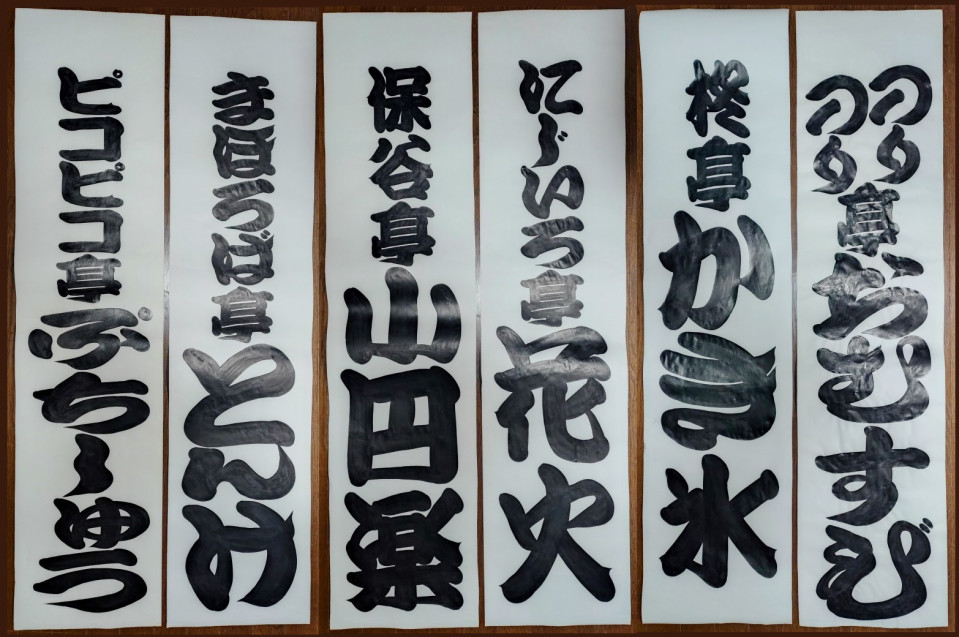 つりつり亭おむすび
柊亭かき氷
にーいち亭花火
保谷亭山田楽
まほろば亭とん
ピコピコ亭ぷちーゆう